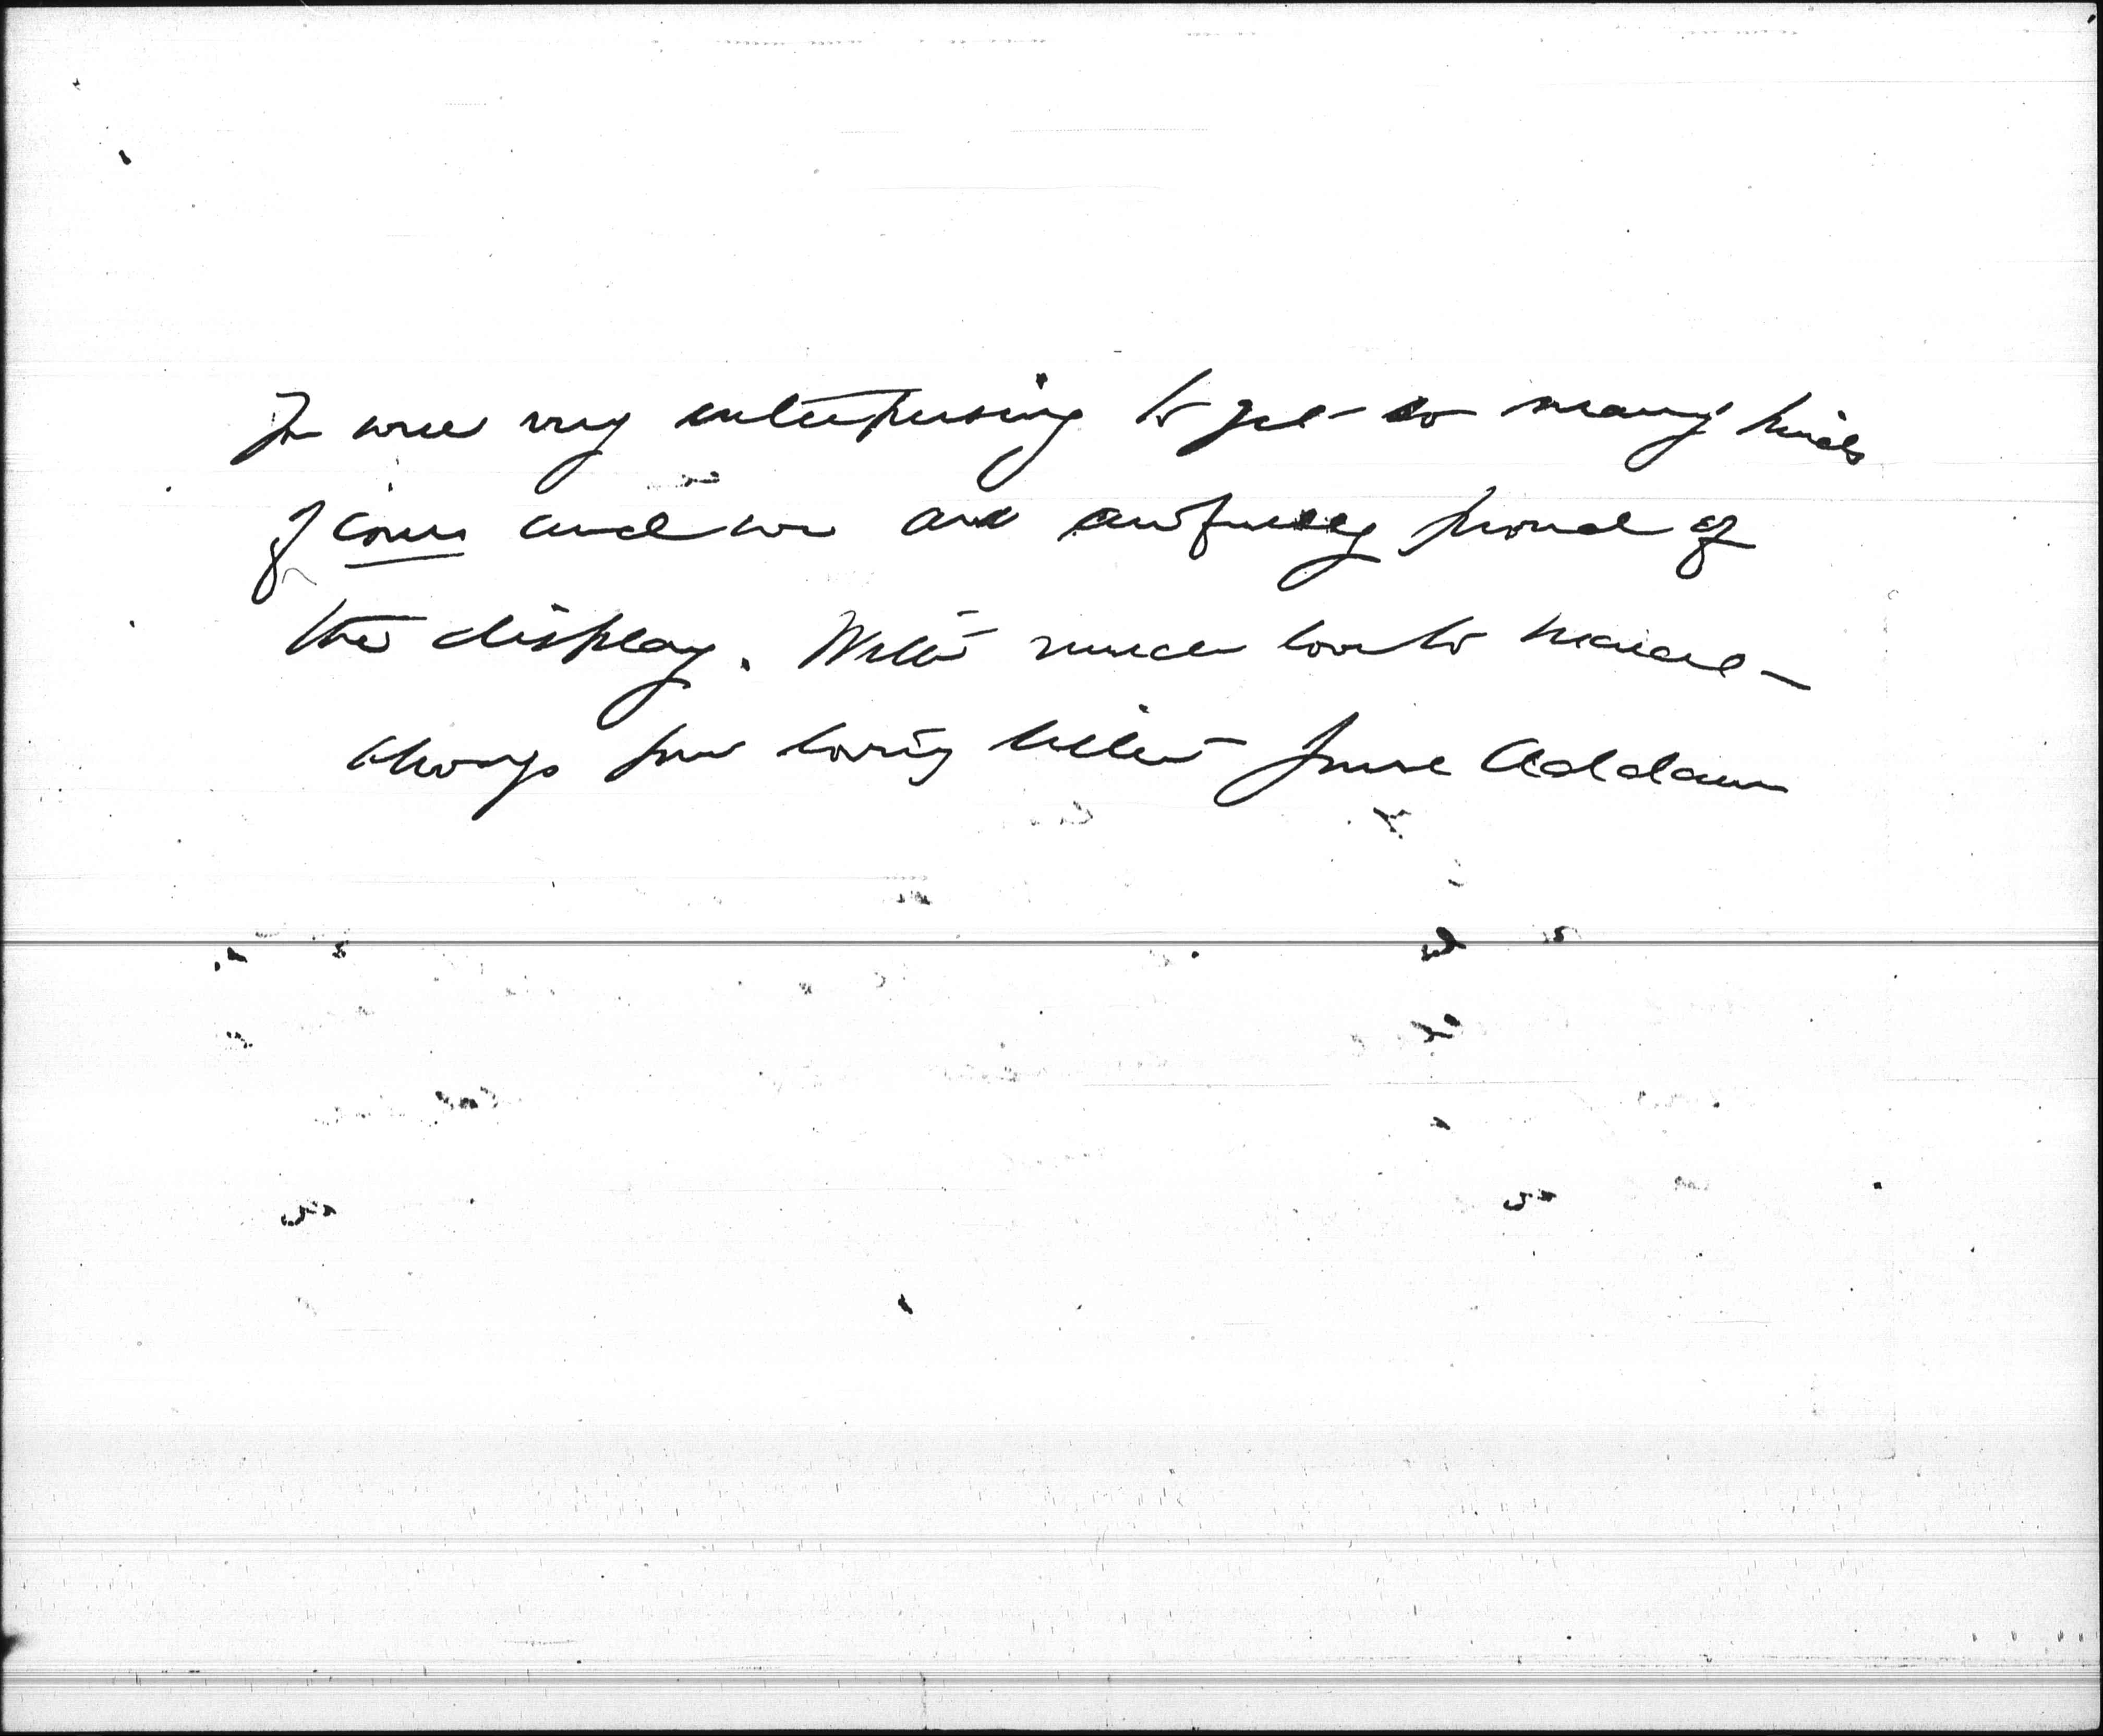 You were very enterprising to get so many kinds
of coins and we are awfully proud of
the display. With much love to
always your loving sister Jane Addams